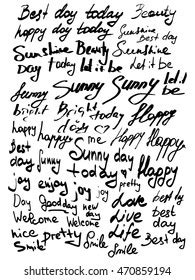 Best day today Beauty
happy day today Sunshine
best day
Sunshine Beauty Sunshine
Day today let it be let it be
Sunny Sunny let it be
bright Bright Happy
today
happy happy day me Happy Happy
Best day funny Sunny day
today Happy
joy enjoy joy pretty
joy
Day Good day new day Love best day
Welcome Welcome Live best day
nice pretty Smile Life
Smile Smile Best day
shutterstock
IMAGE ID: 470859194
www.shutterstock.com